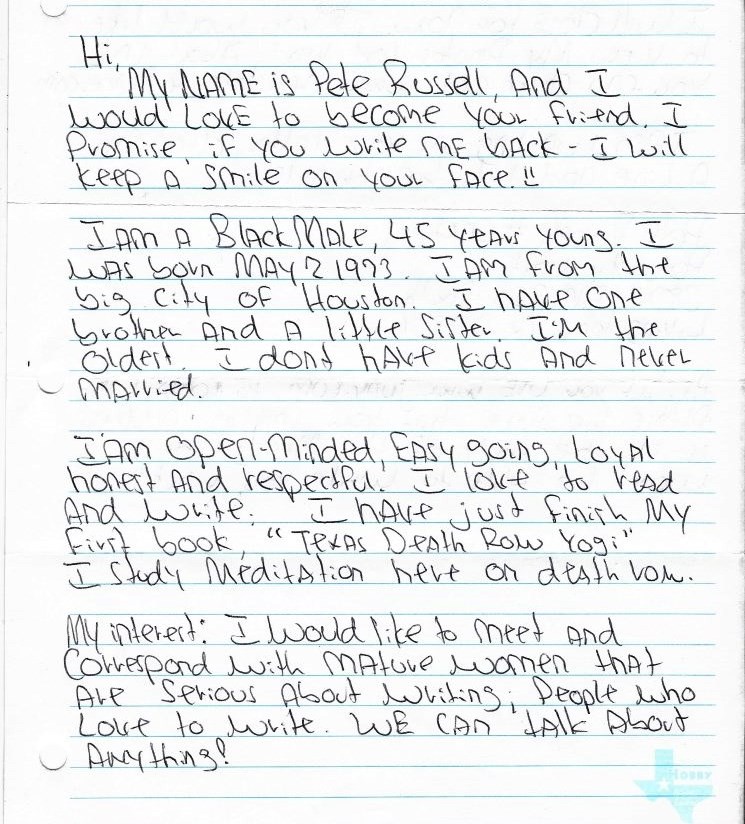 Hi,
My NAME is Pete Russell, And I
would LOVE to become your friend. I
Promise, if you write ME bACK - I will
keep A smile on your face.!!
I Am A Black Male, 45 years young. I
was born MAY 2 1973. I AM from the
big City of Houston. I have one
brother And A little Sister. I'm the
Oldest. I dont have kids And never
married.
I'Am Open-Minded, Easy going, Loyal
honest And respectful. I love to read
And write. I have just finish My
First book, "Texas Death Row Yogi"
I Study Meditation here on death row.
My interest: I would like to meet And
Correspond with mature women that
Are Serious About writing; People who
Love to write. WE CAN talk About
Anything!
HOBBY